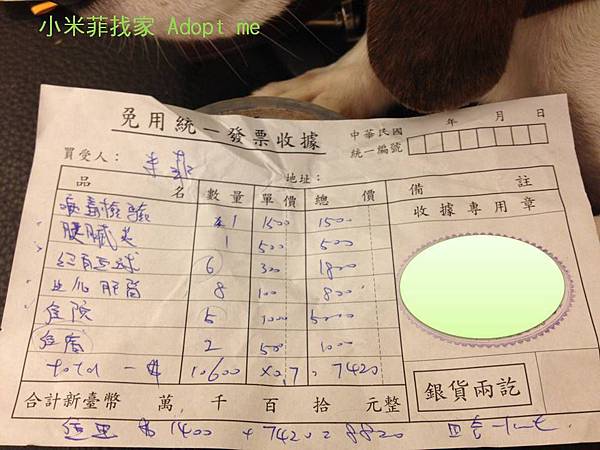 小米菲找家 Adopt me
免用統一發票收據
中華民國 年 月 日
統一編號
買受人： 米菲 地址：
品名 數量 單價 總價 備註
病毒檢驗 1 1500 1500
胰臟炎 1 500 500
6 300 1800
8 100 800
住院 5 1000 5000
2 500 1000
total 一 $ 10,600 x0.7 = 7420
收據專用章
銀貨兩訖
合計新臺幣 萬 千 百 拾 元整
$ 1400 + 7420 = 8820